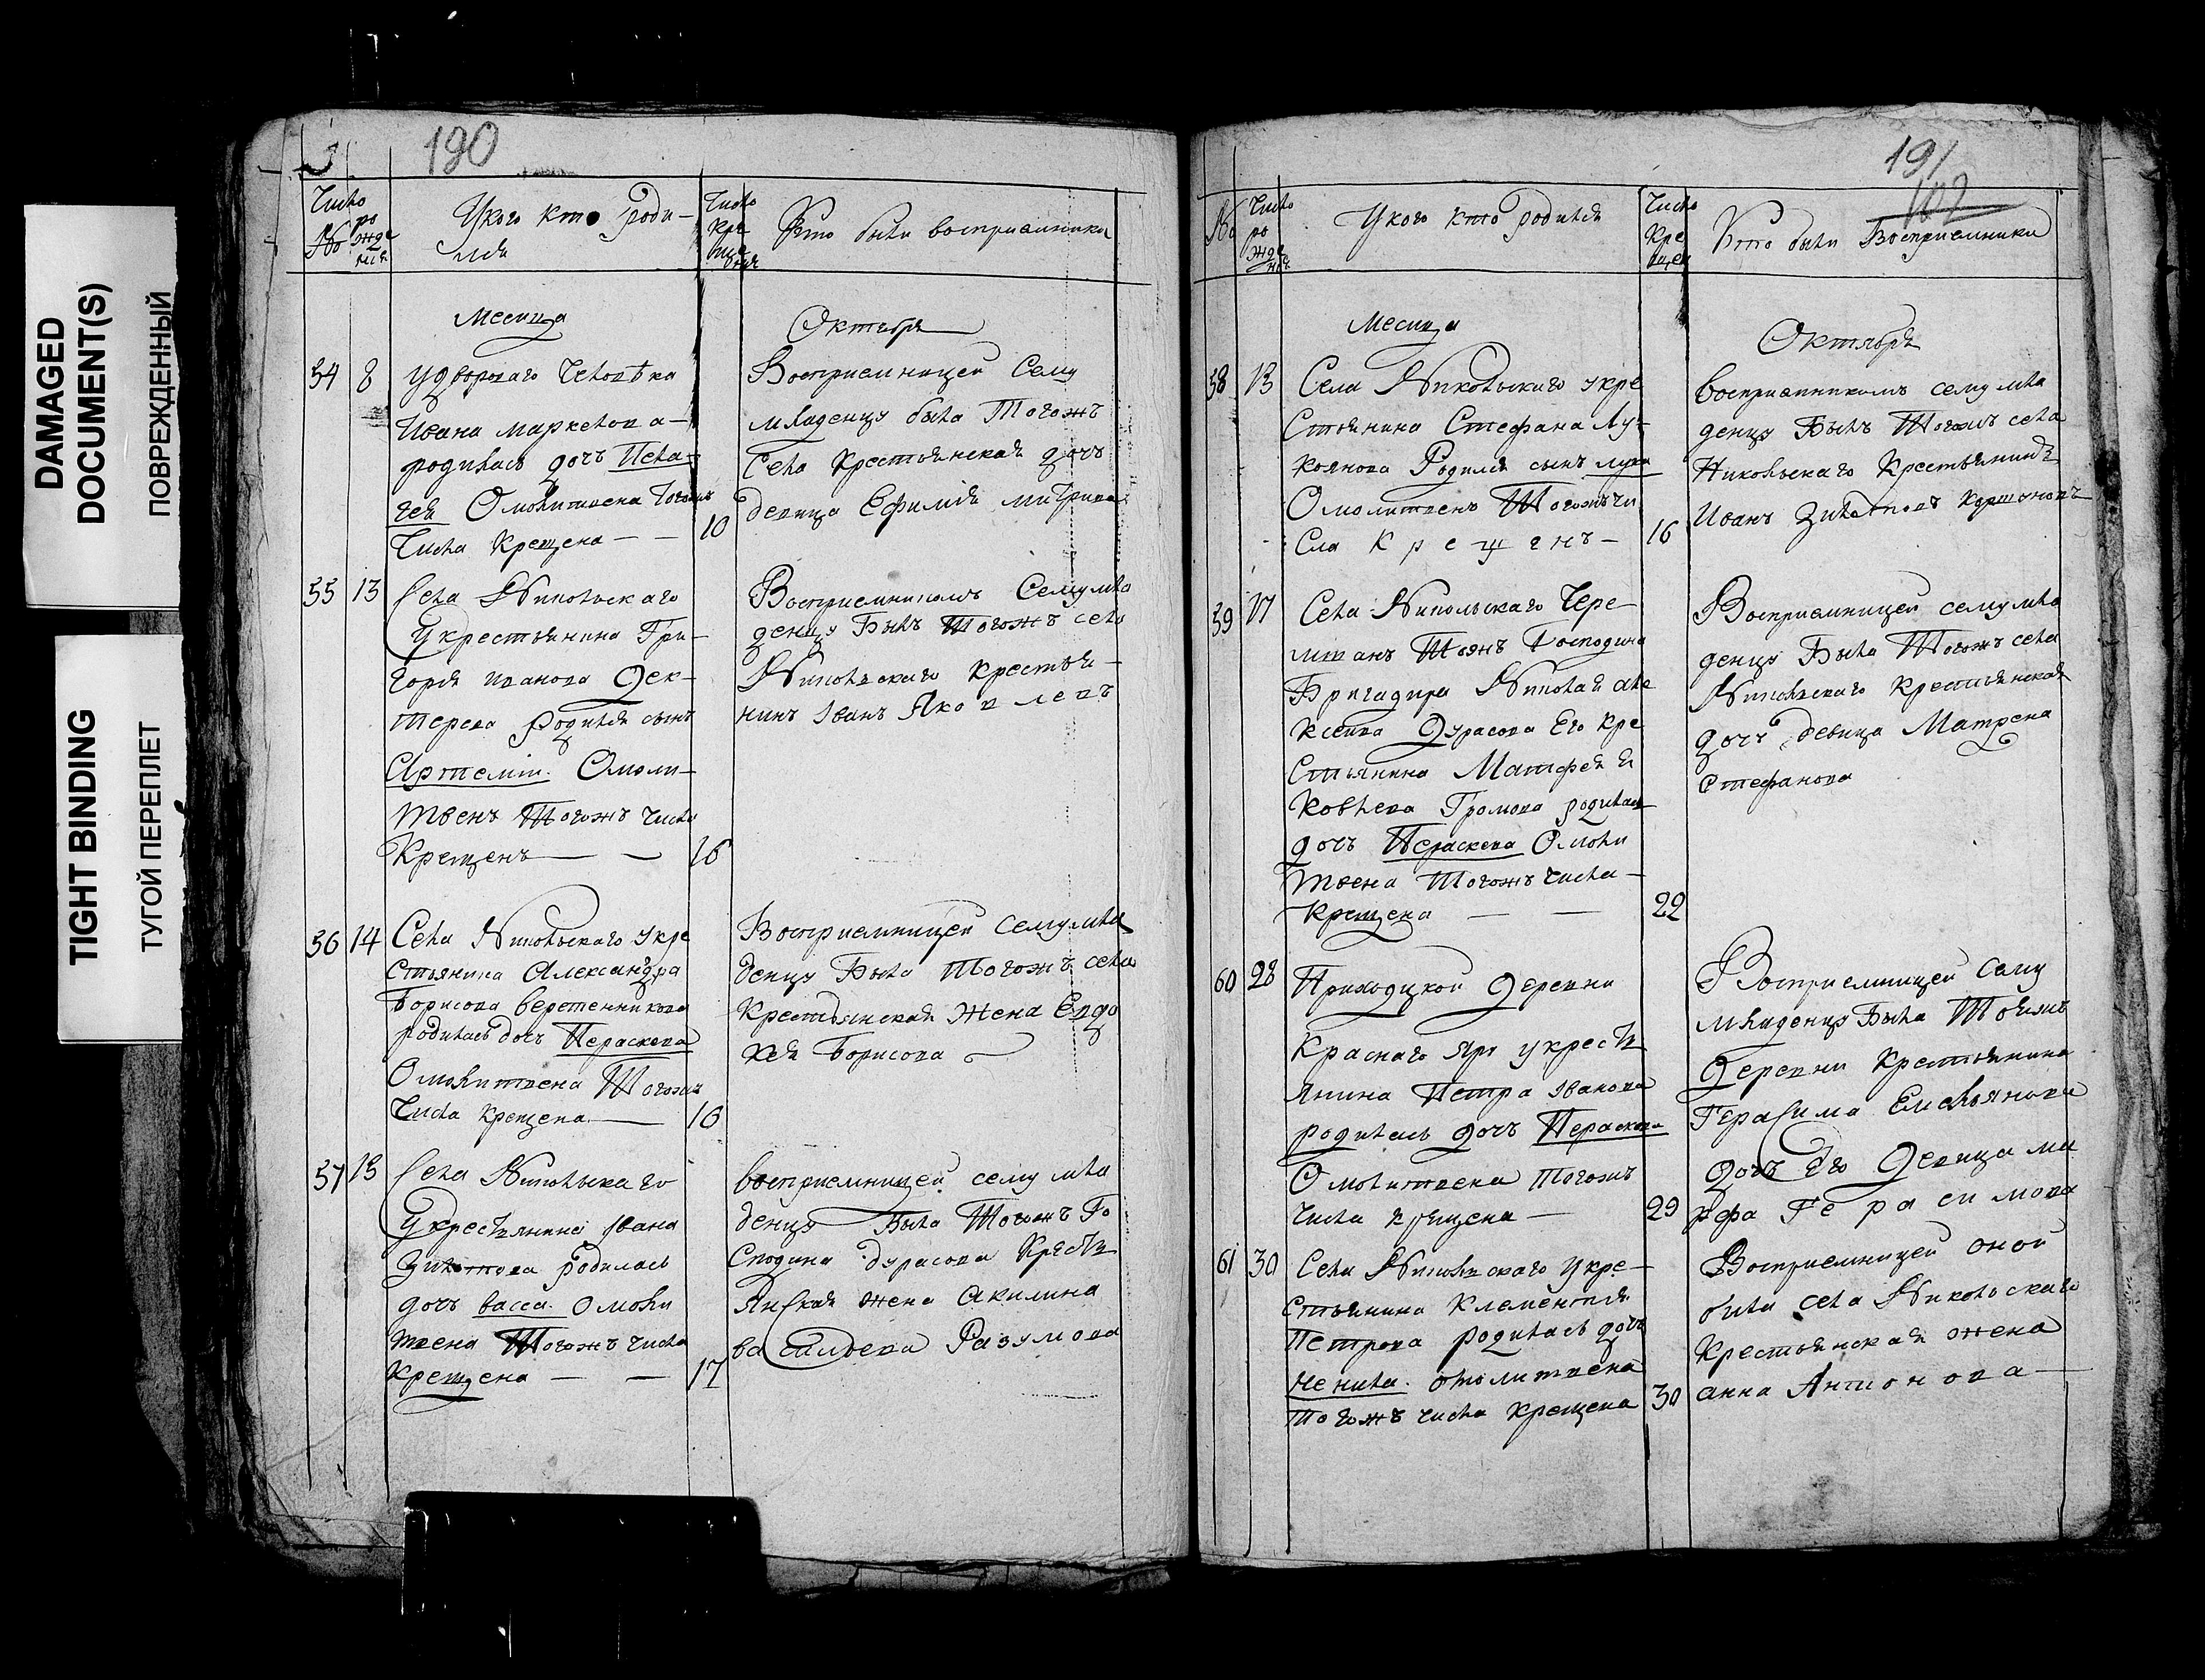 DAMAGED
DOCUMENT(S)
ПОВРЕЖДЕННЫЙ
TIGHT BINDING
ТУГОЙ ПЕРЕПЛЕТ
190
Число
№ рожде
нія
У кого кто роди-
лся
Число
кре
ще
нія
Кто были восприемники
Месяца
Октября
54 8
У двороваго человѣка
Ивана Маркелова-
родилась дочь Пела-
гея Омолитвена тогожъ
числа Крещена — — 10
Восприемницей Сему
младенцу была Тогожъ
Села Крестьянская дочь
девица Ефимія Митриева
55 13
Села Никольскаго
У крестьянина Гри-
горія Иванова Дек-
терева родился сынъ
Артемій. Омоли-
твенъ Тогожъ числа
Крещенъ — — 16
Восприемникомъ Сему мла
денцу Былъ Тогожъ села
Никольскаго Крестья-
нинъ Іванъ Яковлевъ
56 14
Села Никольскаго у кре
стьянина Александра
Борисова Веретенникова
родилась дочь Пераскева
Омолитвена Тогожъ
Числа Крещена — 16
Восприемницей Сему мла
денцу Была Тогожъ села
Крестьянская Жена Евдо
кея Борисова
57 15
Села Никольскаго
У крестьянина Івана
Зилотова родилась
дочь Васса. Омоли
твена Тогожъ числа
Крещена — — 17
восприемницей сему мла
денцу Была Тогожъ Го
сподина Дурасова Кресть
янская жена Акилина
Васильева Разумова
191
102
№
Число
ро
жде
нія
У кого кто родился
Число
Кре
щен
Кто были Восприемники
Месяца
Октября
58 13
Села Никольскаго у кре
стьянина Стефана Лу-
коянова Родился сынъ Лука
Омолитвенъ Тогожъ чи
сла Крещенъ — 16
Восприемникомъ сему мла
денцу Былъ Тогожъ села
Никольскаго Крестьянинъ
Иванъ Зилотовъ
59 17
Села Никольскаго Чере-
мшанъ Тожъ Господина
Бригадира Николая Але
ксеива Дурасова Его Кре
стьянина Матфея Я
ковлева Громова родилась
дочь Пераскева Омоли
твена Тогожъ числа —
Крещена — — 22
Восприемницей сему мла
денцу Была Тогожъ села
Никольскаго Крестьянская
дочь девица Матрена
Стефанова
60 28
Приходцкой Деревни
Краснаго Яру у кресть
янина Петра Іванова
родилась дочь Пераскева
Омолитвена Тогожъ
числа крещена — 29
Восприемницей Сему
младенцу Была Тоежъ
Деревни Крестьянина
Герасима Емельянова
дочь Его Девица Ма
рфа Герасимова
61 30
Села Никольскаго у кре-
стьянина Клементія
Петрова родилась дочь
Ненила. Омолитвена
Тогожъ числа крещена 30
Восприемницей оной
была села Никольскаго
Крестьянская жена
Анна Антонова —